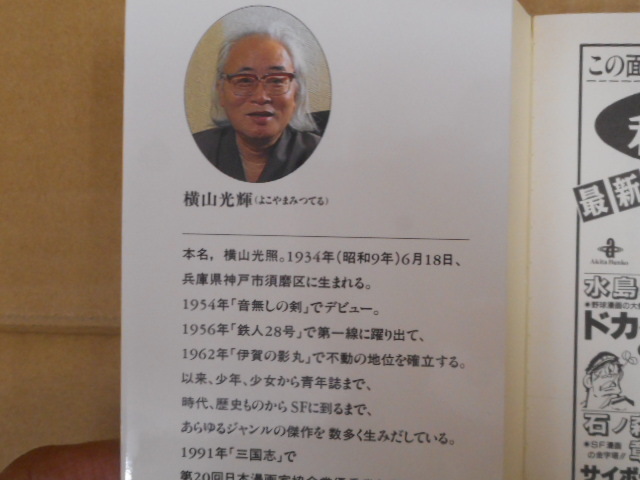 横山光輝(よこやまみつてる)
本名，横山光照。1934年(昭和9年)6月18日、
兵庫県神戸市須磨区に生まれる。
1954年「音無しの剣」でデビュー。
1956年「鉄人28号」で第一線に躍り出て、
1962年「伊賀の影丸」で不動の地位を確立する。
以来、少年、少女から青年誌まで、
時代、歴史ものからSFに到るまで、
あらゆるジャンルの傑作を数多く生みだしている。
1991年「三国志」で
第20回日本漫画家協会
この面
最新
Akita Bunko
水島
●野球漫画の大
ドカ
石ノ森
●SF漫画
の金字塔!!
サイボ